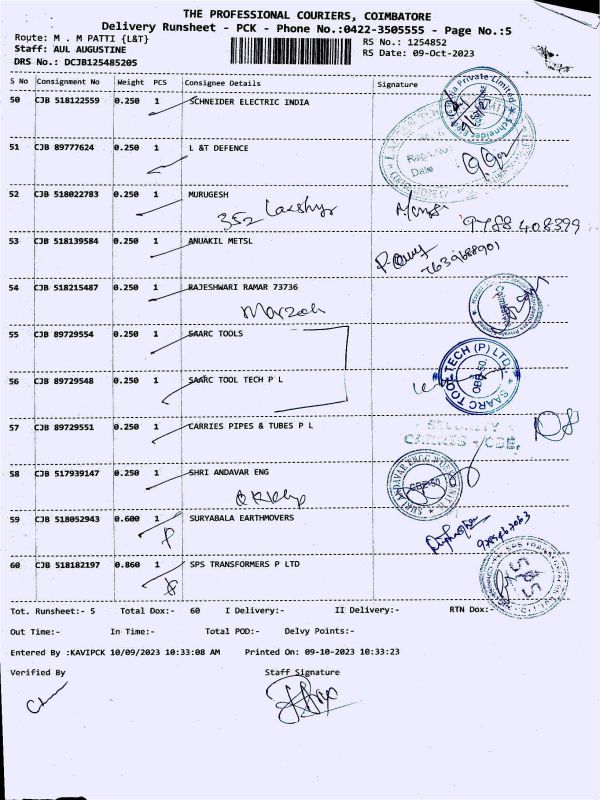 THE PROFESSIONAL COURIERS, COIMBATORE
Delivery Runsheet - PCK - Phone No.:0422-3505555 - Page No.:5
Route: M . M PATTI {L&T}
RS No.: 1254852
Staff: AUL AUGUSTINE
RS Date: 09-Oct-2023
DRS No.: DCJB125485205
S No Consignment No Weight PCS Consignee Details Signature
50 CJB 518122559 0.250 1 SCHNEIDER ELECTRIC INDIA
51 CJB 89777624 0.250 1 L &T DEFENCE
Date
52 CJB 518022783 0.250 1 MURUGESH
352 Lakshya
9788408399
53 CJB 518139584 0.250 1 ANUAKIL METSL
7639688901
54 CJB 518215487 0.250 1 RAJESHWARI RAMAR 73736
55 CJB 89729554 0.250 1 SAARC TOOLS
56 CJB 89729548 0.250 1 SAARC TOOL TECH P L
SAARC TOOL TECH (P) LTD.
57 CJB 89729551 0.250 1 CARRIES PIPES & TUBES P L
58 CJB 517939147 0.250 1 SHRI ANDAVAR ENG
59 CJB 518052943 0.600 1 SURYABALA EARTHMOVERS
60 CJB 518182197 0.860 1 SPS TRANSFORMERS P LTD
Tot. Runsheet:- 5 Total Dox:- 60 I Delivery:- II Delivery:- RTN Dox:-
Out Time:- In Time:- Total POD:- Delvy Points:-
Entered By :KAVIPCK 10/09/2023 10:33:08 AM Printed On: 09-10-2023 10:33:23
Verified By Staff Signature